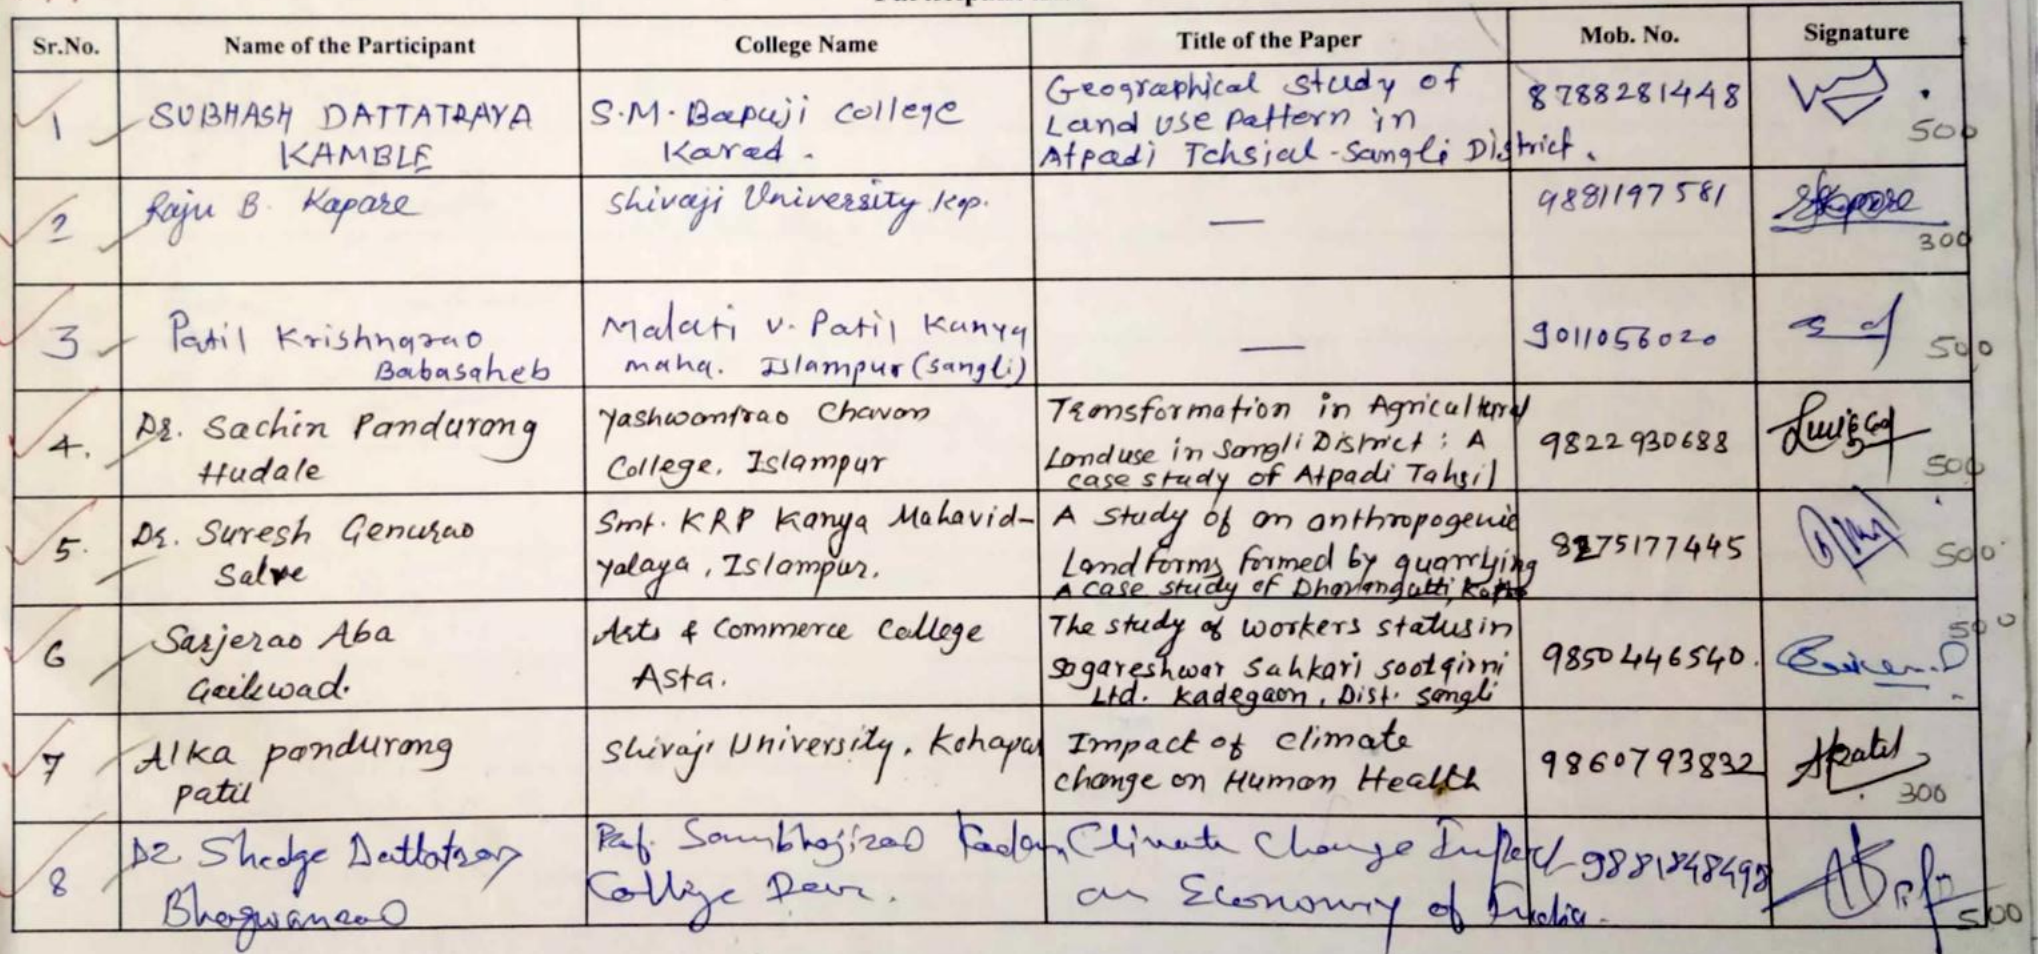 Sr.No. Name of the Participant College Name Title of the Paper Mob. No. Signature
1 SUBHASH DATTATRAYA KAMBLE S.M. Bapuji College Karad. Geographical study of Land use pattern in Atpadi Tehsial-Sangli District. 8788281448 500
2 Raju B. Kapare Shivaji University, Kop. — 9881197581 300
3 Patil Krishnarao Babasaheb Malati V. Patil Kanya maha. Islampur (Sangli) — 9011056020 500
4. Dr. Sachin Pandurang Hudale Yashwantrao Chavan College, Islampur Transformation in Agricultural Landuse in Sangli District: A case study of Atpadi Tahsil 9822930688 500
5. Dr. Suresh Genurao Salve Smt. KRP Kanya Mahavid-yalaya, Islampur. A Study of an anthropogenic Landforms formed by quarrying A case study of 8275177445 500
6 Sarjerao Aba Gaikwad. Arts & Commerce College Asta. The study of workers status in Sagareshwar Sahkari sootgirni Ltd. Kadegaon, Dist. Sangli 9850446540. 500
7 Alka pandurang patil Shivaji University, Kohapur Impact of climate change on Human Health 9860793832 APatil 300
8 Dr. Shedge Dattatray Bhagwanrao Prof. Sambhajirao Kadam College Deur. Climate Change Impact on Economy of India. 9881848498 500